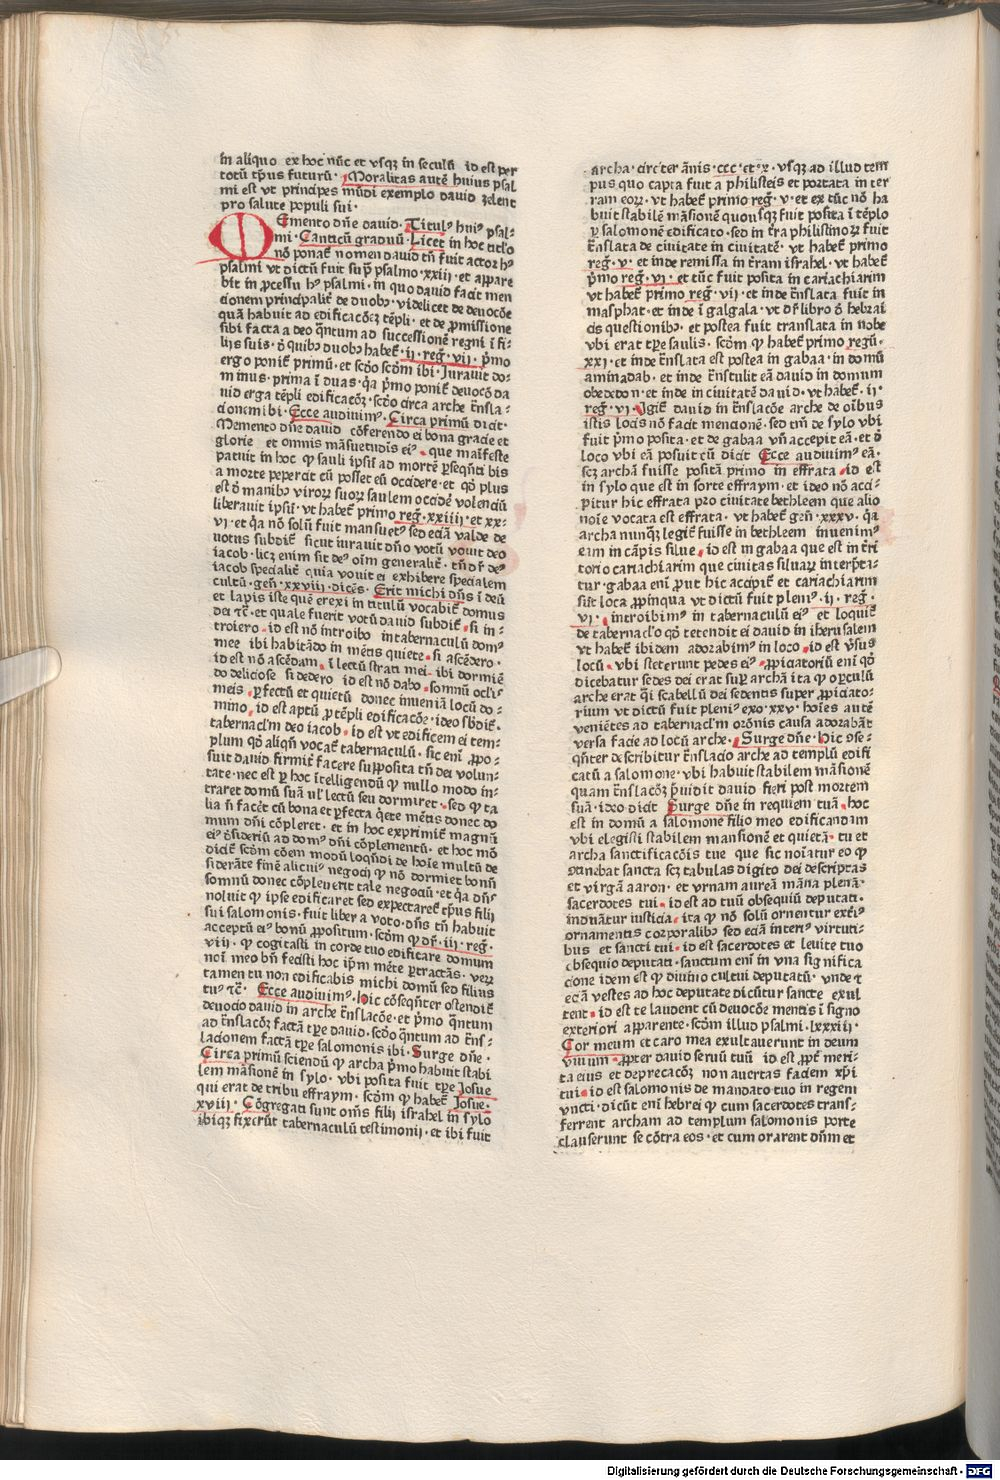 in aliquo ex hoc nūc et vsqꝫ in seculū id est per
totū tp̄us futurū · Moralitas autē huius psal
mi est vt principes mūdi exemplo dauid zelent
pro salute populi sui ·
MEmento dn̄e dauid · Titulꝰ huiꝰ psal⸗
mi · Canticū graduū · Licet in hoc titl'o
nō ponat̄ nomen dauid tn̄ fuit actor hꝰ
psalmi vt dictū fuit sup̄ psalmo · xxiij · et appare
bit in ꝓcessu hꝰ psalmi · in quo dauid facit men
cionem principalit̄ de duobꝰ · videlicet de deuocōe
quā habuit ad edificacōeꝫ tēpli · et de ꝓmissione
sibi facta a deo q̄ntum ad successionē regni ī fi⸗
lijs suis · ꝺ quibꝰ duobꝰ habet̄ · ij · reḡ · vij · p̄mo
ergo ponit̄ primū · et scd̄o scd̄m ibi · Iurauit do⸗
minus · prima ī duas · q̄a p̄mo ponit̄ deuocō da
uid erga tēpli edificacōꝫ · scd̄o circa arche t̄nsla⸗
cionem ibi · Ecce audiuimꝰ · Circa primū dicit ·
Memento dn̄e dauid cōferendo ei bona gracie et
glorie et omnis māsuetudīs eiꝰ · que maīfeste
patuit in hoc ꝙ sauli ipsū ad mortē ꝑseqn̄ti bis
a morte pepercit cū posset eū occidere · et qd̄ plus
est ꝺ manibꝰ viroꝝ suoꝝ saulem occidē volenciū
liberauit ipsū · vt habet̄ primo reḡ · xxiiij · et xx⸗
vj · et q̄a nō solū fuit mansuetꝰ sed eciā valde de
uotus subdit̄ sicut iurauit dn̄o votū vouit deo
iacob · licꝫ enim sit deꝰ oīm generalit̄ · tn̄ dr̄ deꝰ
iacob specialit̄ quia vouit ei exhibere specialem
cultū · gen̄ · xxviij · dicēs · Erit michi dn̄s ī deū
et lapis iste quē erexi in titulū vocabit̄ domus
dei ⁊c̄ · et quale fuerit votū dauid subdit̄ · si in⸗
troiero · id est nō introibo in tabernaculū domꝰ
mee ibi habitādo in mētis quiete · si ascēdero ·
id est nō ascēdam · ī lectū strati mei · ibi dormiē
do deliciose si dedero id est nō dabo · somnū ocli⸗
meis · ꝑfectū et quietū donec inueniā locū do⸗
mino · id est aptū ꝓ tēpli edificacōe · ideo sb̄dit̄ ·
tabernacl'm deo iacob · id est vt edificem ei tem⸗
plum qd̄ aliqn̄ vocat̄ tabernaculū · sic enī ꝓpo⸗
suit dauid firmit̄ facere supposita tn̄ dei volun⸗
tate · nec est ꝑ hoc ītelligendū ꝙ nullo modo in⸗
traret domū suā ul' lectū seu dormiret · sed ꝙ ta
lia n̄ facēt cū bona et ꝑfecta q̄ete mētis donec do
mum dn̄i cōpleret · et in hoc exprimit̄ magnū
eiꝰ ꝺsideriū ad domꝰ dn̄i cōplementū · et hoc mō
dicit̄ scd̄m cōem modū loqn̄di de hoīe multū de
siderāte finē alicuiꝰ negocij ꝙ nō dormiet bonū
somnū donec cōpleuerit tale negociū · et q̄a dn̄s
noluit ꝙ ipse edificaret sed expectaret̄ tp̄us filij
sui salomonis · fuit liber a voto · dn̄s tn̄ habuit
acceptū eiꝰ bonū ꝓpositum · scd̄m ꝙ dr̄ · iij · reḡ ·
viij · ꝙ cogitasti in corde tuo edificare domum
noī meo bn̄ fecisti hoc ip̄m mēte ꝑtractās · veꝝ
tamen tu non edificabis michi domū sed filius
tuꝰ ⁊c̄ · Ecce audiuimꝰ · hic cōseqn̄ter ostendit̄
deuocio dauid in arche t̄nslacōe · et p̄mo q̄ntum
ad t̄nslacōꝫ factā tp̄re dauid · scd̄o q̄ntum ad t̄ns⸗
lacionem factā tp̄re salomonis ibi · Surge dn̄e ·
Circa primū sciendū ꝙ archa p̄mo habuit stabi
lem māsionē in sylo · vbi posita fuit tp̄re Josue
qui erat de tribu effraym · scd̄m ꝙ habet̄ Josue ·
xviij · Cōgregati sunt om̄s filij israhel in sylo
ibiqꝫ fixerūt tabernaculū testimonij · et ibi fuit
archa · circiter ānis · ccc · et · x · vsqꝫ ad illud tem
pus quo capta fuit a philisteis et portata in ter
ram eoꝝ · vt habet̄ primo reḡ · v · et ex tūc nō ha
buit stabilē māsionē quousqꝫ fuit posita ī tēplo
ꝑ salomonē edificato · sed in t̄ra philistinoꝝ fuit
t̄nslata de ciuitate in ciuitatē · vt habet̄ primo
reḡ · v · et inde remissa in t̄ram israhel · vt habet̄
p̄mo reḡ · vj · et tūc fuit posita in cariachiarim
vt habet̄ primo reḡ · vij · et inde t̄nslata fuit in
masphat · et inde ī galgala · vt dr̄ libro ꝺ hebrai
cis questionibꝰ · et postea fuit translata in nobe
vbi erat tp̄re saulis · scd̄m ꝙ habet̄ primo regū ·
xxj · et inde t̄nslata est postea in gabaa · in domū
aminadab · et inde t̄nstulit eā dauid in domum
obededon · et inde in ciuitatē dauid · vt habet̄ · ij ·
reḡ · vj · Igit̄ dauid in t̄nslacōe arche de oībus
istis locis nō facit mencionē · sed tm̄ de sylo vbi
fuit p̄mo posita · et de gabaa vn̄ accepit eā · et ꝺ
loco vbi eā posuit cū dicit Ecce audiuimꝰ eā ·
scꝫ archā fuisse positā primo in effrata · id est
in sylo que est in sorte effraym · et ideo nō acci⸗
pitur hic effrata pro ciuitate bethleem que alio
noīe vocata est effrata · vt habet̄ gen̄ · xxxv · q̄a
archa nunqꝫ legit̄ fuisse in bethleem inuenimꝰ
eam in cāpis silue · id est in gabaa que est in t̄ri
torio cariachiarim que ciuitas siluaꝝ interp̄ta⸗
tur · gabaa enī ꝓut hic accipit̄ et cariachiarim
sūt loca ꝓpinqua vt dictū fuit pleniꝰ · ij · reḡ ·
vj · introibimꝰ in tabernaculū eiꝰ et loquit̄
de tabernacl'o qd̄ tetendit ei dauid in iherusalem
vt habet̄ ibidem adorabimꝰ in loco · id est v̄sus
locū · vbi steterunt pedes eiꝰ · ꝓpiciatoriū enī qd̄
dicebatur sedes dei erat suꝑ archā ita ꝙ opculū
arche erat q̄i scabellū dei sedentis super ꝓpiciato⸗
rium vt dictū fuit pleniꝰ exo · xxv · hoīes autē
veniētes ad tabernacl'm orōnis causa adorabāt
versa facie ad locū arche · Surge dn̄e · Hic ꝯse⸗
qn̄ter describitur t̄nslacio arche ad templū edifi
catū a salomone · vbi habuit stabilem māsionē
quam t̄nslacōꝫ p̄uidit dauid fieri post mortem
suā · ideo dicit Surge dn̄e in requiem tuā · hoc
est in domū a salomone filio meo edificandam
vbi elegisti stabilem mansionē et quietā · tu et
archa sanctificacōis tue que sic noīatur eo ꝙ
ꝯtinebat sancta scꝫ tabulas digito dei descriptas
et virgā aaron · et vrnam aureā māna plenā ·
sacerdotes tui · id est ad tuū obsequiū deputati ·
induātur iusticia · ita ꝙ nō solū ornentur ext̄iꝰ
ornamentis corporalibꝰ sed eciā interiꝰ virtuti⸗
bus et sancti tui · id est sacerdotes et leuite tuo
obsequio deputati · sanctum enī in vna significa
cione idem est ꝙ diuino cultui deputatū · vnde ⁊
eciā vestes ad hoc deputate dicūtur sancte exul
tent · id est te laudent cū deuocōe mentis ī signo
exteriori apparente · scd̄m illud psalmi · lxxxiij ·
Cor meum et caro mea exultauerunt in deum
viuum · ꝓpter dauid seruū tuū id est ꝓpt̄ meri⸗
ta eius et deprecacōꝫ non auertas faciem xp̄i
tui · id est salomonis de mandato tuo in regem
vncti · dicūt enī hebrei ꝙ cum sacerdotes trans⸗
ferrent archam ad templum salomonis porte
clauserunt se cōtra eos · et cum orarent dn̄m et
Digitalisierung gefördert durch die Deutsche Forschungsgemeinschaft - DFG